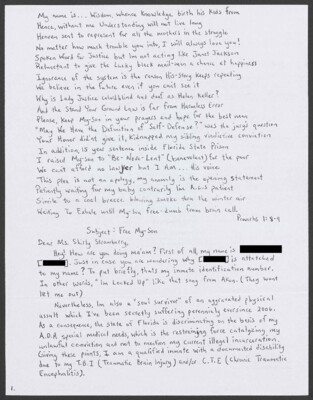 My name is... Wisdom, whence Knowledge birth his Kids from
Hence, without me Understanding will not live long
Heaven sent to represent for all the mothers in the struggle
No matter how much trouble you into, I will always love you!
Spoken Word for Justice but I'm not acting like Janet Jackson
Reluctant to give the lucky black mail-man a chance at happiness
Ignorance of the system is the reason His-story keeps repeating
We believe in the future even if you can't see it
Why is Lady Justice colorblind and deaf as Helen Keller?
And the Stand Your Ground Law is far from Harmless Error
Please, keep My-Son in your prayers and hope for the best mom
"May We Hear the Definition of Self-Defense?" was the jury's question
Your Honor didn't give it, Kidnapped my sibling vindictive conviction
In addition, 15 year sentence inside Florida State Prison
I raised My-Son to "Be-Neva-Lent" (benevolent) for the poor
We can't afford no lawyer but I Am... His voice
This plea is not an apology, my anomaly is the opening statement
Patiently waiting for my baby contrarily I'm N.I.C.U patient
Simile' to a cool breeze blowing swerve than the winter air
Waiting To Exhale until My Son free-domb from brain cell.
Proverbs 31:8-9
Subject: Free My-Son
Dear Ms. Shirly Strawberry,
Hey! How are you doing ma'am? First of all, my name is
[ ]. Just in case you are wondering why [ ] is attatched
to my name? To put briefly, thats my inmate identification number.
In other words, "I'm Locked Up" like that song from Akon. (They wont
let me out)
Nevertheless, I'm also a "soul survivor" of an aggravated physical
assult which I've been secretly suffering perennially ever since 2006.
As a consequence, the state of Florida is discriminating on the basis of my
A.D.A special medical needs, which is the restraining force catalyzing my
unlawful conviction and not to mention my current illegal incarceration.
Giving these points, I am a qualified inmate with a documented disability
due to my T.B.I (Traumatic Brain Injury) and/or C.T.E (Chronic Traumatic
Encephalitis).
1.